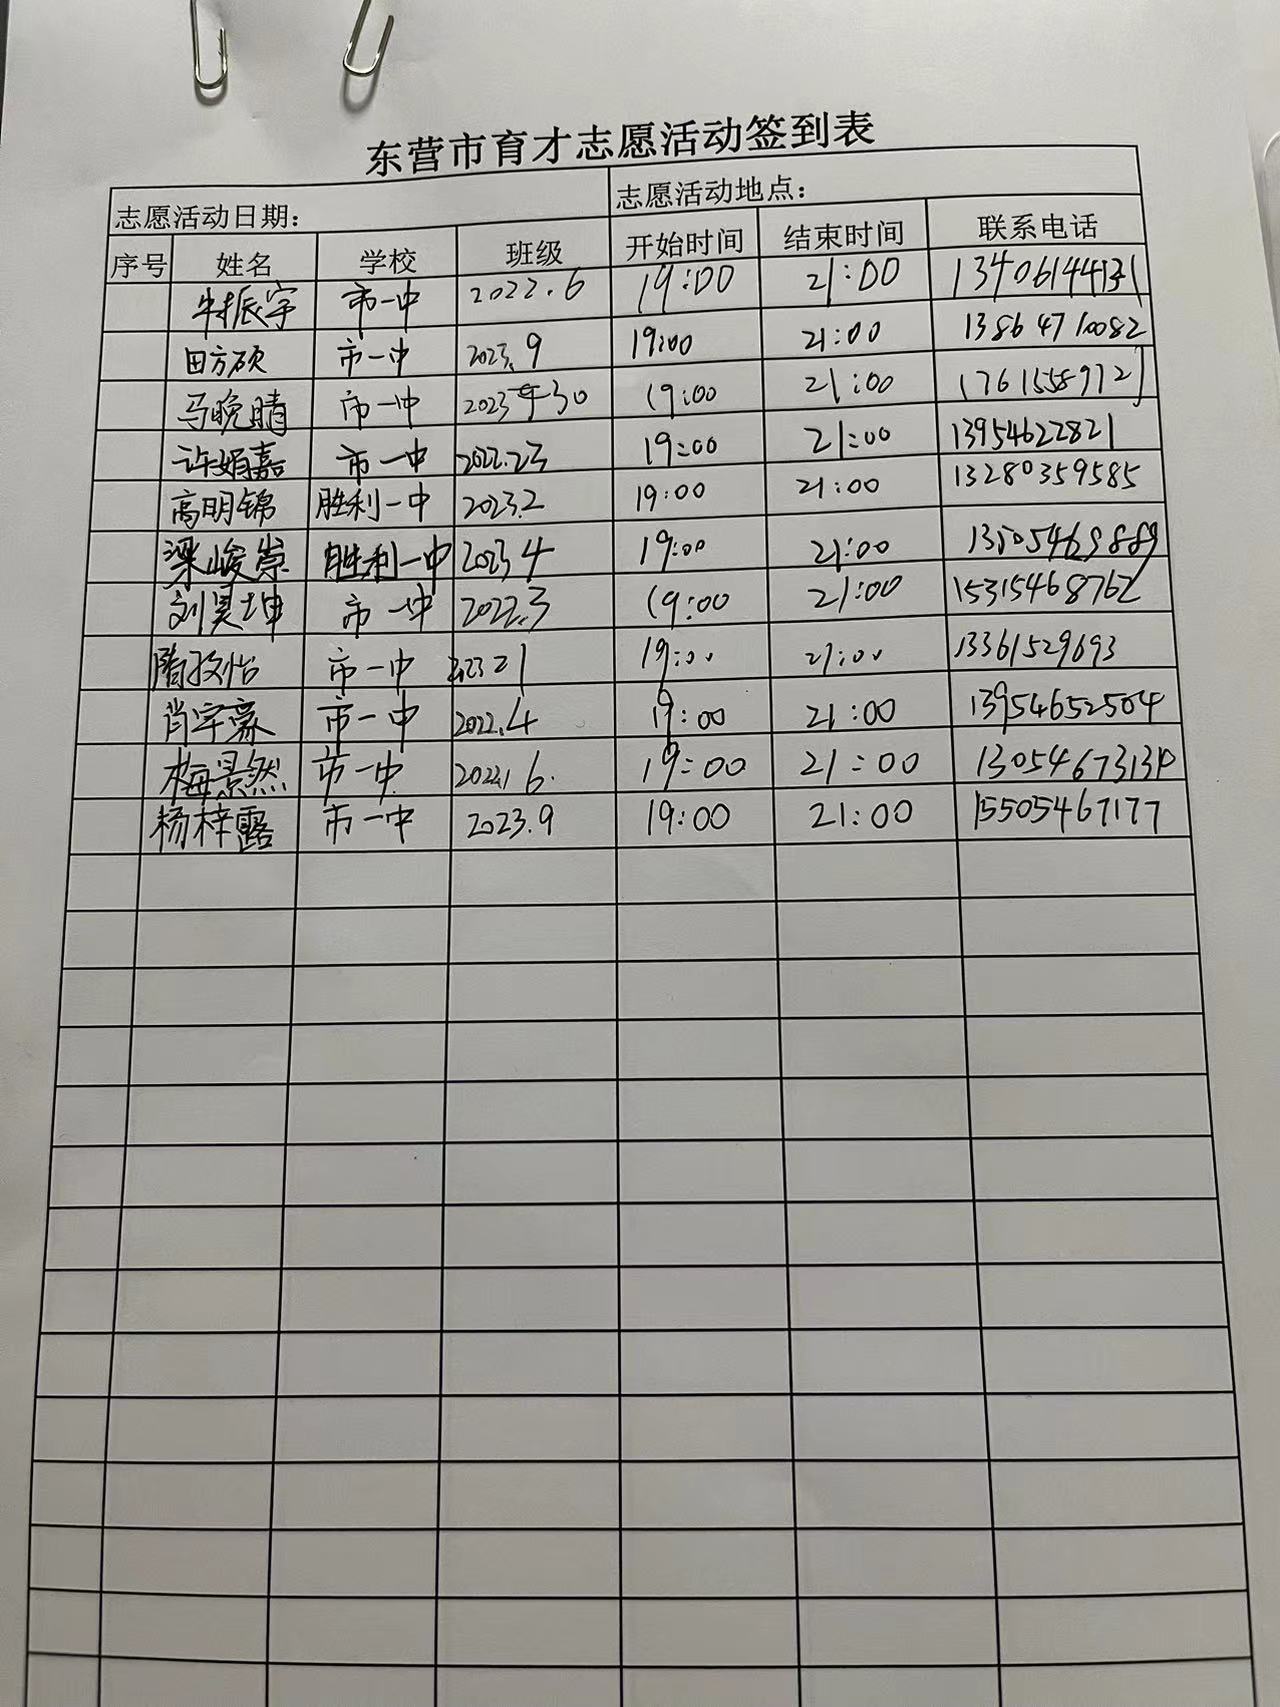 东营市育才志愿活动签到表
志愿活动日期: 志愿活动地点:
序号 姓名 学校 班级 开始时间 结束时间 联系电话
牛振宇 市一中 2022.6 19:00 21:00
田方硕 市一中 2023.9 19:00 21:00 13864710082
马晚晴 市一中 2023年30 19:00 21:00
许娟嘉 市一中 2022.23 19:00 21:00 13954622821
高明锦 胜利一中 2023.2 19:00 21:00 13280359585
梁峻崇 胜利一中 2023.4 19:00 21:00 13505469889
刘昊坤 市一中 2022.3 19:00 21:00 15315468762
市一中 2023 21 19:00 21:00 13361529693
肖宇豪 市一中 2022.4 19:00 21:00 13954652504
梅景然 市一中 19:00 21:00
杨梓露 市一中 2023.9 19:00 21:00 15505467177